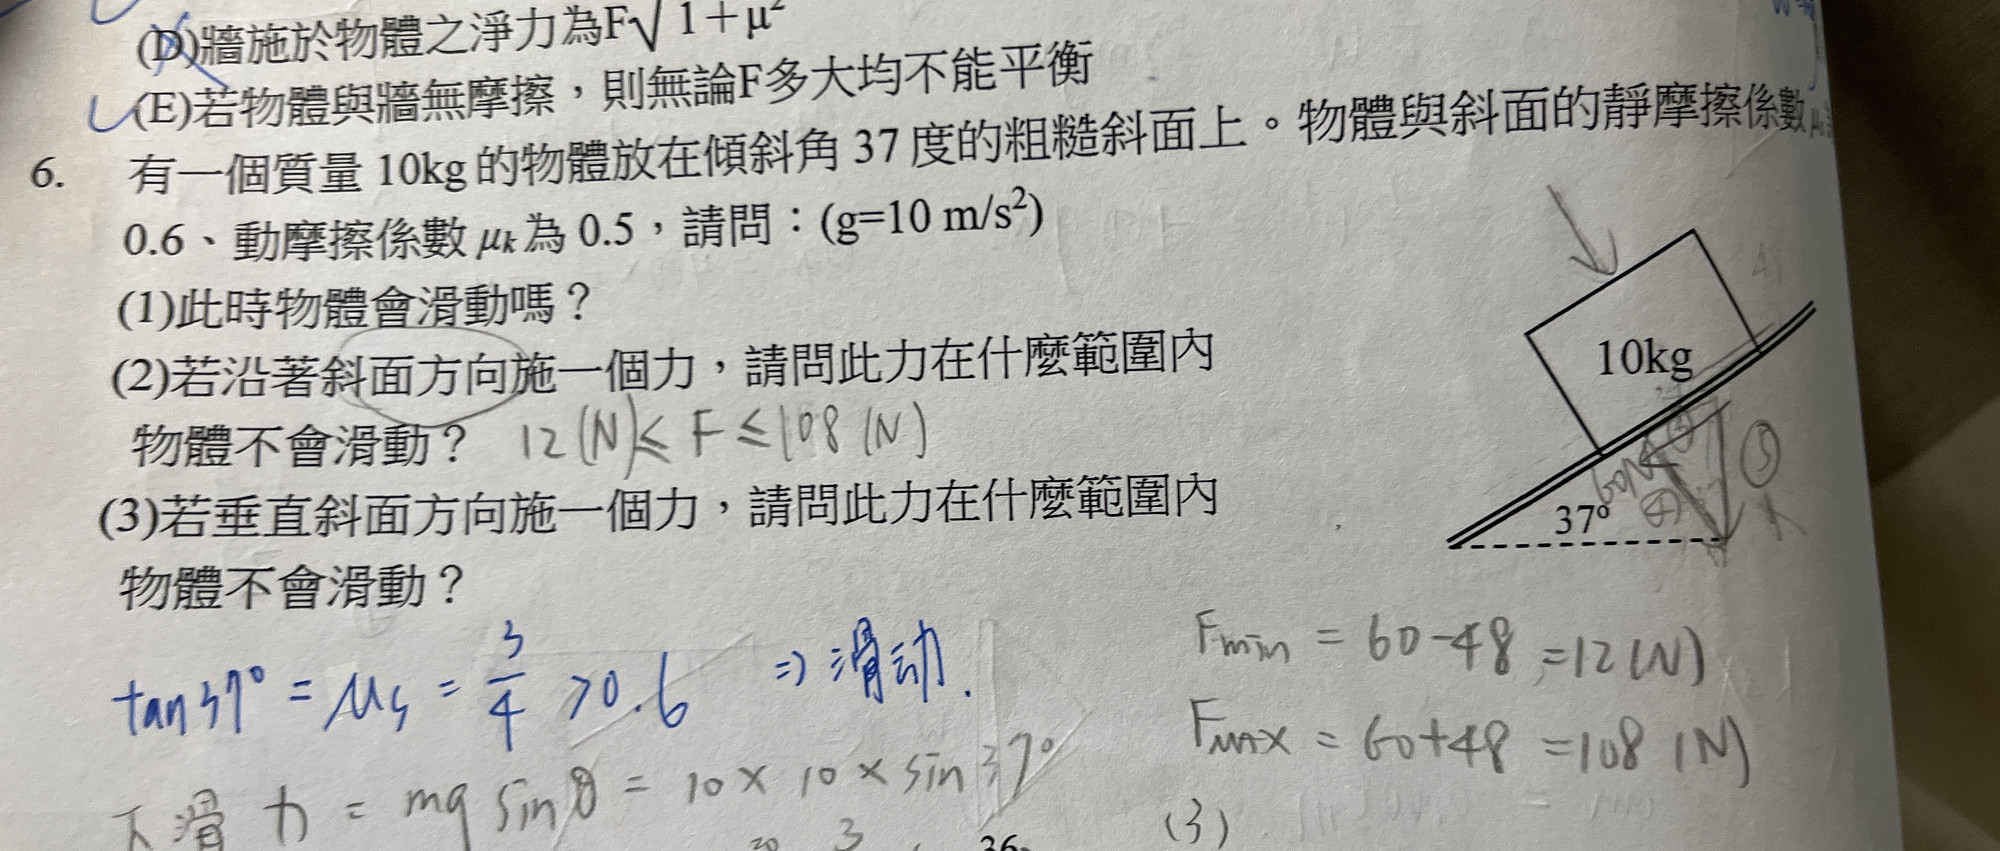 (D)牆施於物體之淨力為F√1+μ²
(E)若物體與牆無摩擦，則無論F多大均不能平衡
6. 有一個質量 10kg 的物體放在傾斜角 37 度的粗糙斜面上。物體與斜面的靜摩擦係數
0.6、動摩擦係數 μk 為 0.5，請問：(g=10 m/s²)
(1)此時物體會滑動嗎？
(2)若沿著斜面方向施一個力，請問此力在什麼範圍內
物體不會滑動？ 12(N)≤ F ≤108(N)
(3)若垂直斜面方向施一個力，請問此力在什麼範圍內
物體不會滑動？
10kg
37°
tan37° = μs = 3/4 >0.6 ⇒ 滑动.
下滑力 = mg sinθ = 10 × 10 × sin37°
3
Fmin = 60-48 =12(N)
FMAX = 60+48 =108(N)
(3)
36